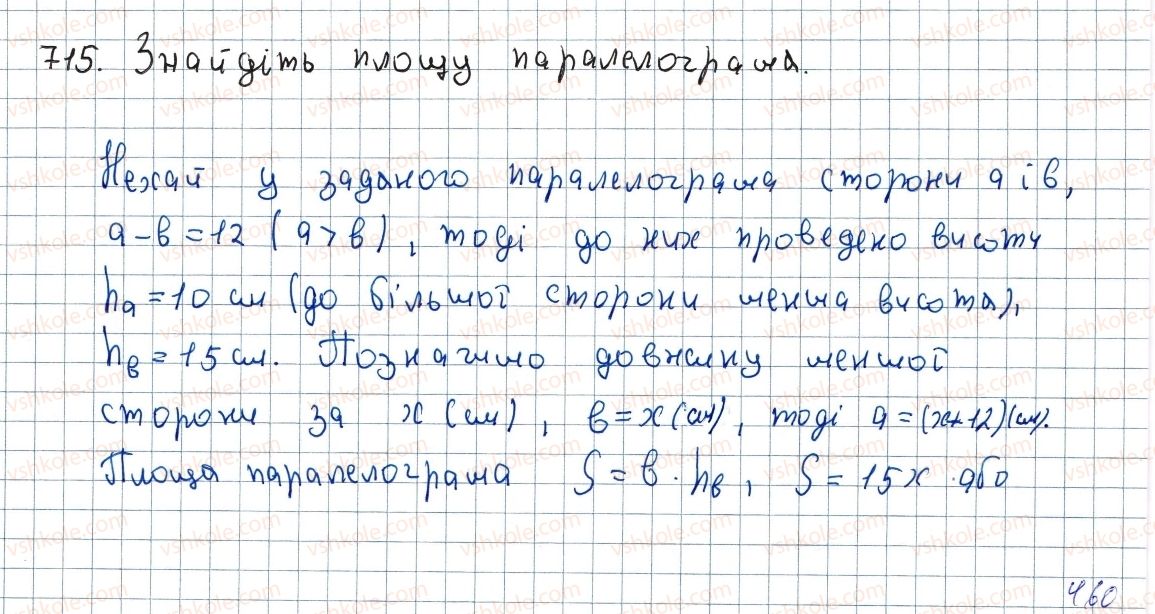 715. Знайдіть площу паралелограма.
Нехай у заданого паралелограма сторони a і b,
a - b = 12 (a > b), тоді до них проведено висоти
hₐ = 10 см (до більшої сторони менша висота),
h_b = 15 см. Позначимо довжину меншої
сторони за x (см), b = x (см), тоді a = (x + 12) (см).
Площа паралелограма S = b · h_b, S = 15x або
460